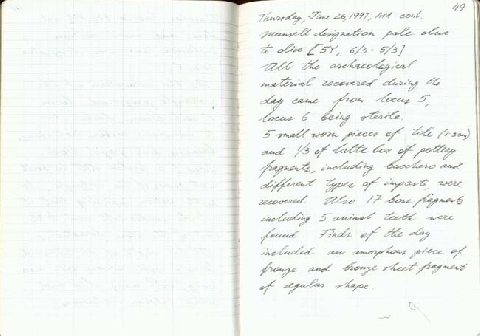 49
Thursday, June 26, 1997, cont.
munsell designation pale olive
to olive [5Y, 6/3 - 5/3]
All the archaeological
material recovered during the
day came from locus 5,
locus 6 being sterile.
5 small worn pieces of tile
and 1/3 of little box of pottery
fragments, including bucchero and
different types of impasto were
recovered. Also 17 bone fragments
including 5 animal teeth were
found. Finds of the day
included an amorphous piece of
bronze and bronze sheet fragment
of regular shape.